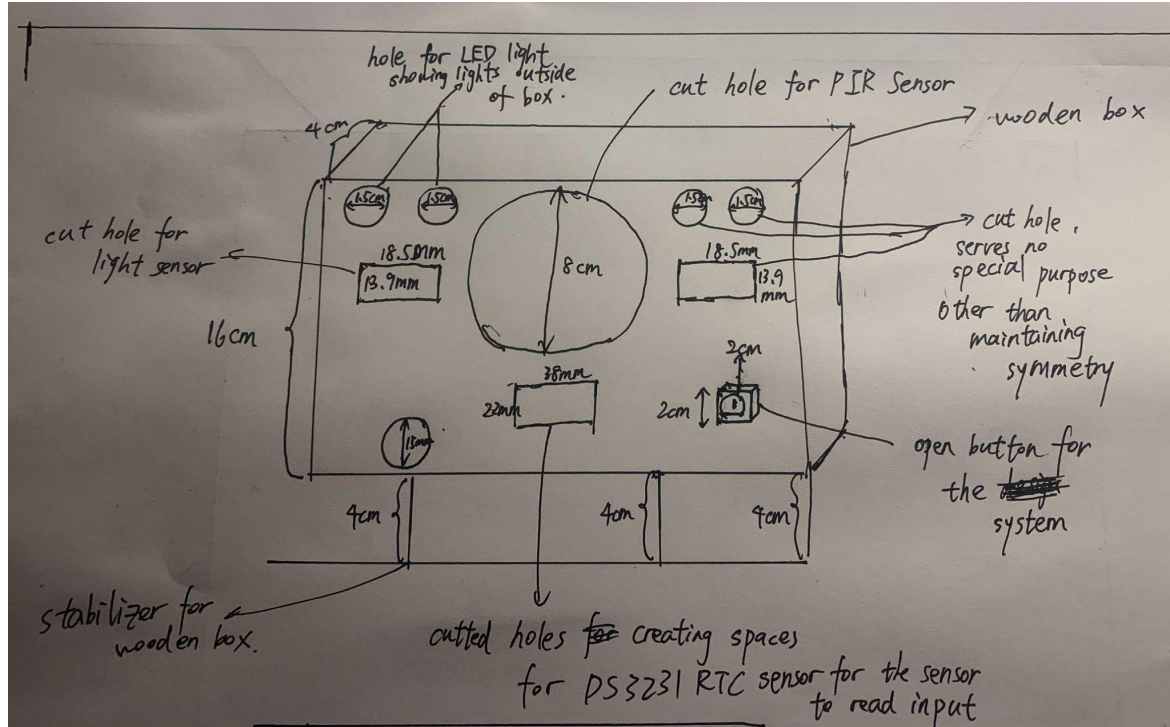 hole for LED light
showing lights outside
of box.
cut hole for PIR Sensor
4cm
wooden box
1.5cm
1.5cm
1.5cm
1.5cm
cut hole for
light sensor
18.5mm
13.9mm
8cm
18.5mm
13.9
mm
cut hole,
serves no
special
purpose
other than
maintaining
symmetry
16cm
38mm
22mm
2cm
2cm
15mm
open button for
the
system
4cm
4cm
4cm
stabilizer for
wooden box.
cutted holes for creating spaces
for DS3231 RTC sensor for the sensor
to read input